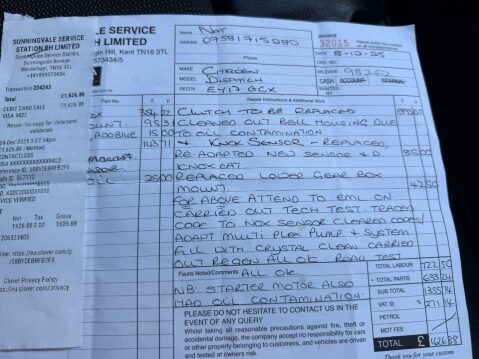 SUNNINGVALE SERVICE
STATION BH LIMITED
Sunningvale Service Station,
Sunningvale Avenue
Westerham, TN16 3TL
+441959573434
Transaction 204243
Total: £1,626.88
DEBIT CARD SALE £1,626.88
VISA 9823
Retain this copy for statement
validation
£1,626.88 | Method:
CONTACTLESS
VISA
SERVICE VERIFIED
Net Tax Gross
https://eu.clover.com/p
/5BBY0EBRFB2F3
Clover Privacy Policy
eu.clover.com/privacy
ALE SERVICE
BH LIMITED
gin Hill, Kent TN16 3TL
573434/5
Name NAT
Address 07581715280
Phone
INVOICE
32015
Please quote this number
on all correspondence
DATE 8-12-25
MAKE CITROEN
MODEL DISPATCH
REG'N EY17 GCX
MILEAGE 98262
CASH ACCOUNT INTERNAL
WANTED
BY
Part No. £ p Repair Instructions & Additional Work £ p
CLUTCH TO BE REPLACED
CLEANED OUT BELL HOUSING DUE
ADDBLUE 15 00 TO OIL CONTAMINATION
143 71 + KNOX SENSOR - REPLACED,
RE-ADAPTED NEW SENSOR + D
KNOXCAT.
OIL 25 00 REPLACED LOWER GEAR BOX
MOUNT. 42 50
FOR ABOVE: ATTEND TO EML ON
CARRIED OUT TECH TEST TRACED
CODE TO NOX SENSOR CLEARED CODES
ADAPT MULTI PLEX PUMP & SYSTEM
FILL WITH CRYSTAL CLEAN CARRIED
OUT REGEN ALL OK. ROAD TEST
Faults Noted/Comments ALL OK.
NB. STARTER MOTOR ALSO
HAD OIL CONTAMINATION
TOTAL LABOUR 722 50
TOTAL PARTS 633 24
SUB TOTAL 1355 74
VAT @ % 271 14
PETROL
MOT FEE
TOTAL £ 1626 88
PLEASE DO NOT HESITATE TO CONTACT US IN THE
EVENT OF ANY QUERY
Whilst taking all reasonable precautions against fire, theft or
accidental damage, the company accept no responsibility for cars
or other property belonging to customers, and vehicles are driven
and tested at owners risk.
Thank you for your custom